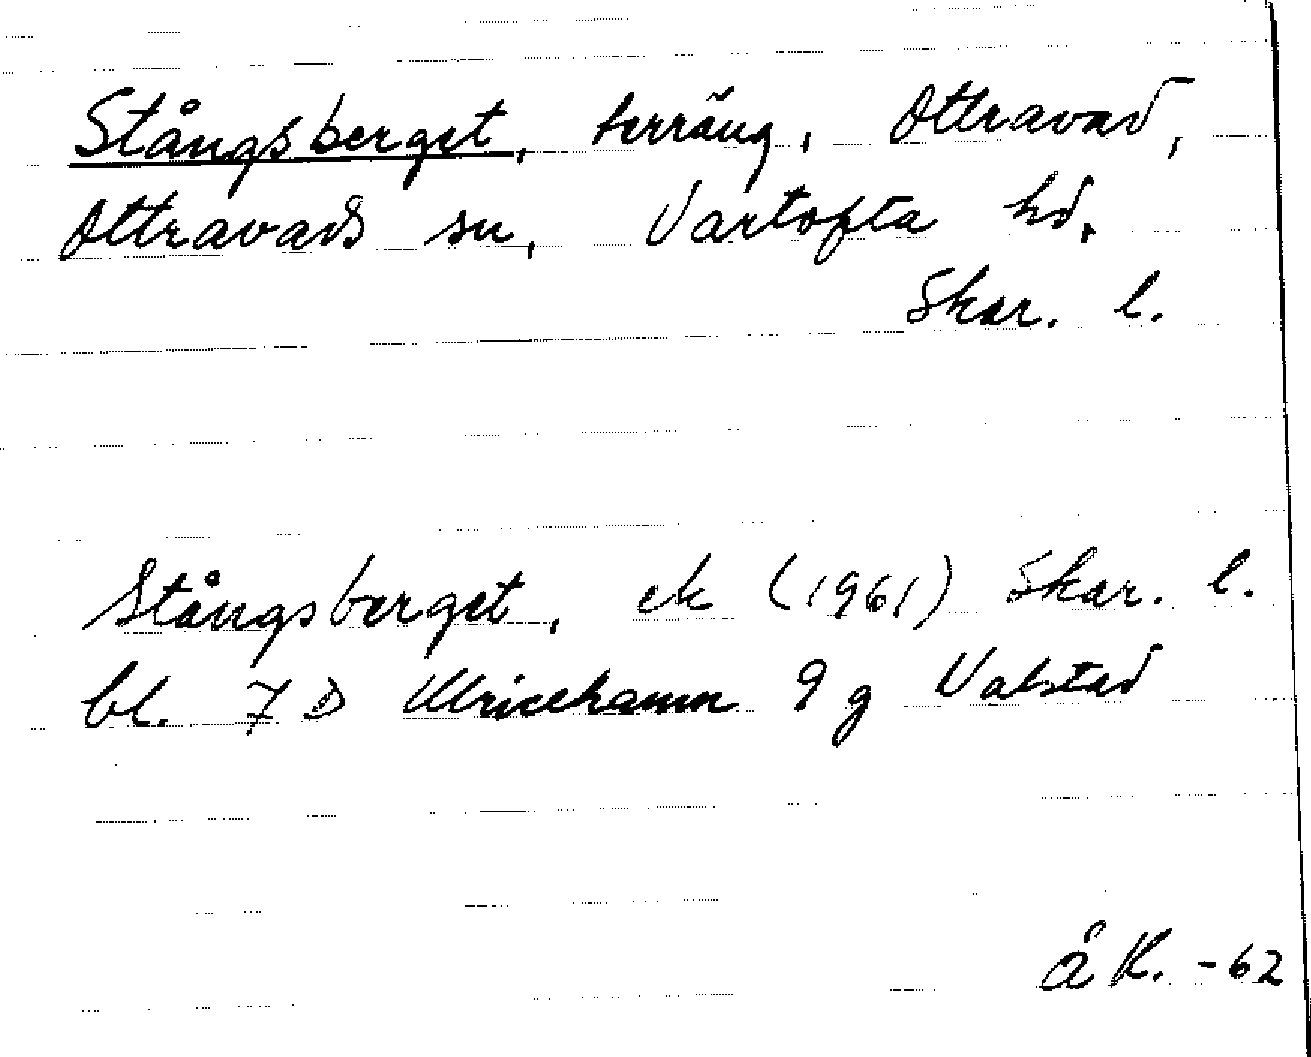 Stångsberget, terräng, Ottravad,
Ottravads sn, Vartofta hd.
Skar. l.
Stångsberget, ek (1961) Skar. l.
bl. 7 D Ulricehamn 9 g Valstad
å K. -62